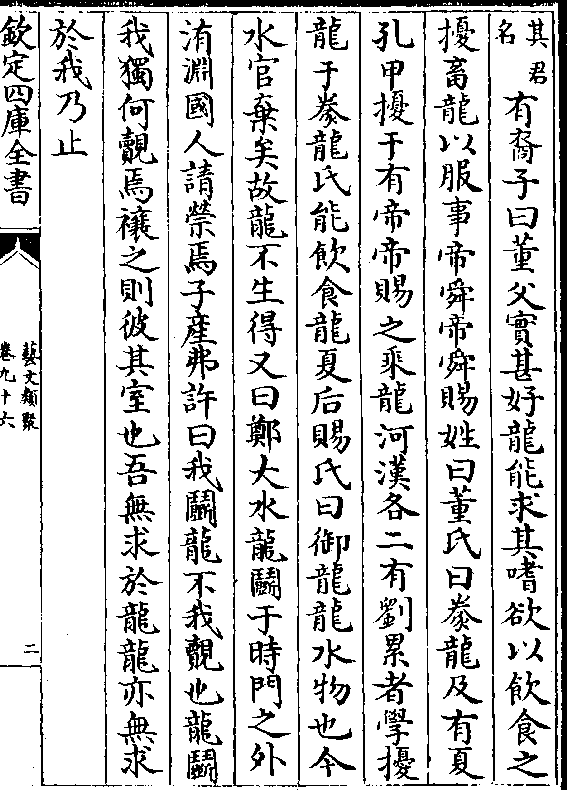 其君
名
有裔子曰董父實甚好龍能求其嗜欲以飲食之
擾畜龍以服事帝舜帝舜賜姓曰董氏曰豢龍及有夏
孔甲擾于有帝帝賜之乘龍河漢各二有劉累者學擾
龍于豢龍氏能飲食龍夏后賜氏曰御龍龍水物也今
水官棄矣故龍不生得又曰鄭大水龍鬭于時門之外
洧淵國人請禜焉子產弗許曰我鬭龍不我覿也龍鬭
我獨何覿焉禳之則彼其室也吾無求於龍龍亦無求
於我乃止
欽定四庫全書
藝文類聚
卷九十六
二